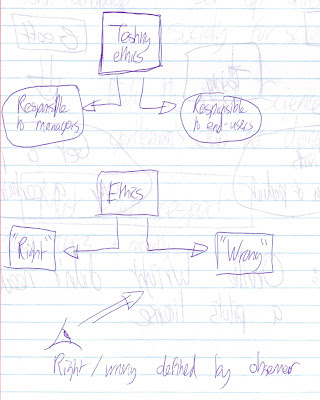 Testing
ethics
Responsible
to managers
Responsible
to end-users
Ethics
"Right"
"Wrong"
Right/wrong defined by observer